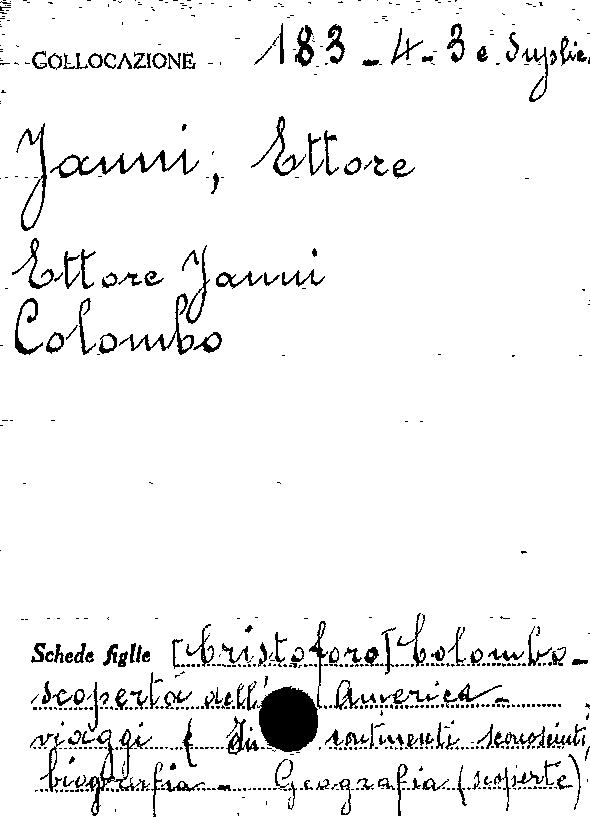 COLLOCAZIONE 183-4-3 e Duplic.
Janni, Ettore
Ettore Janni
Colombo
Schede figlie [Cristoforo] Colombo-
scoperta dell' America-
viaggi ( In continenti sconosciuti,
biografia - Geografia (scoperte)